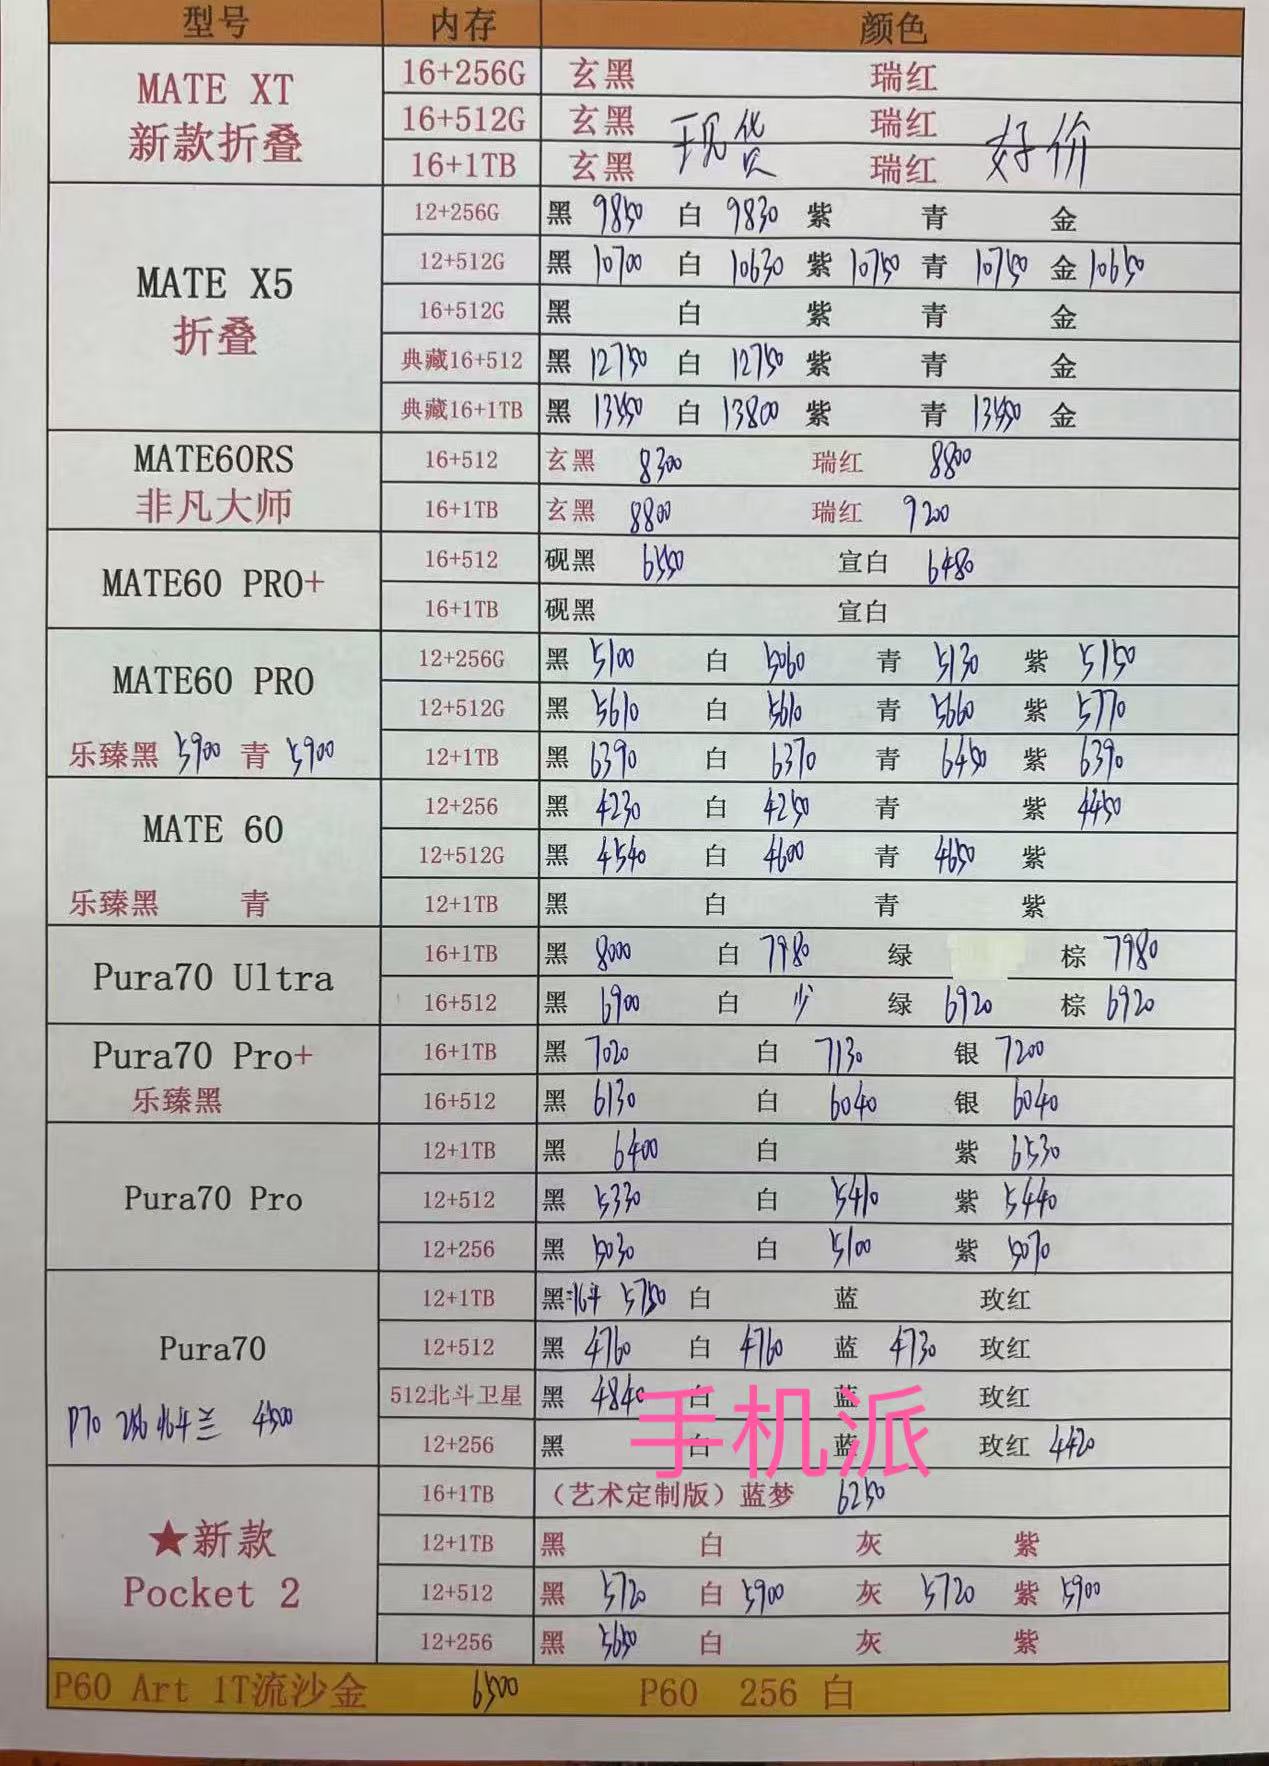 型号 内存 颜色
MATE XT 16+256G 玄黑 瑞红
新款折叠 16+512G 玄黑 现货 瑞红 好价
16+1TB 玄黑 瑞红
12+256G 黑 9850 白 9830 紫 青 金
MATE X5 12+512G 黑 10700 白 10630 紫 10750 青 10750 金 10650
折叠 16+512G 黑 白 紫 青 金
典藏16+512 黑 12750 白 12750 紫 青 金
典藏16+1TB 黑 13550 白 13800 紫 青 13550 金
MATE60RS 16+512 玄黑 8300 瑞红 8800
非凡大师 16+1TB 玄黑 8800 瑞红 9200
MATE60 PRO+ 16+512 砚黑 6550 宣白 6480
16+1TB 砚黑 宣白
MATE60 PRO 12+256G 黑 5100 白 5060 青 5130 紫 5150
12+512G 黑 5610 白 5610 青 5660 紫 5770
乐臻黑 5900 青 5900 12+1TB 黑 6390 白 6370 青 6450 紫 6390
MATE 60 12+256 黑 4230 白 4250 青 紫 4450
12+512G 黑 4540 白 4600 青 4650 紫
乐臻黑 青 12+1TB 黑 白 青 紫
Pura70 Ultra 16+1TB 黑 8000 白 7980 绿 棕 7980
16+512 黑 6900 白 少 绿 6920 棕 6920
Pura70 Pro+ 16+1TB 黑 7020 白 7130 银 7200
乐臻黑 16+512 黑 6130 白 6040 银 6040
12+1TB 黑 6400 白 紫 6530
Pura70 Pro 12+512 黑 5330 白 5410 紫 5440
12+256 黑 5030 白 5100 紫 5070
12+1TB 黑 北斗 5750 白 蓝 玫红
Pura70 12+512 黑 4760 白 4760 蓝 4730 玫红
P70 256 北斗兰 4500 512北斗卫星 黑 4840 白 蓝 玫红
手机派
12+256 黑 白 蓝 玫红 4420
16+1TB （艺术定制版）蓝梦 6250
★新款 12+1TB 黑 白 灰 紫
Pocket 2 12+512 黑 5720 白 5900 灰 5720 紫 5900
12+256 黑 5650 白 灰 紫
P60 Art 1T流沙金 6500 P60 256 白